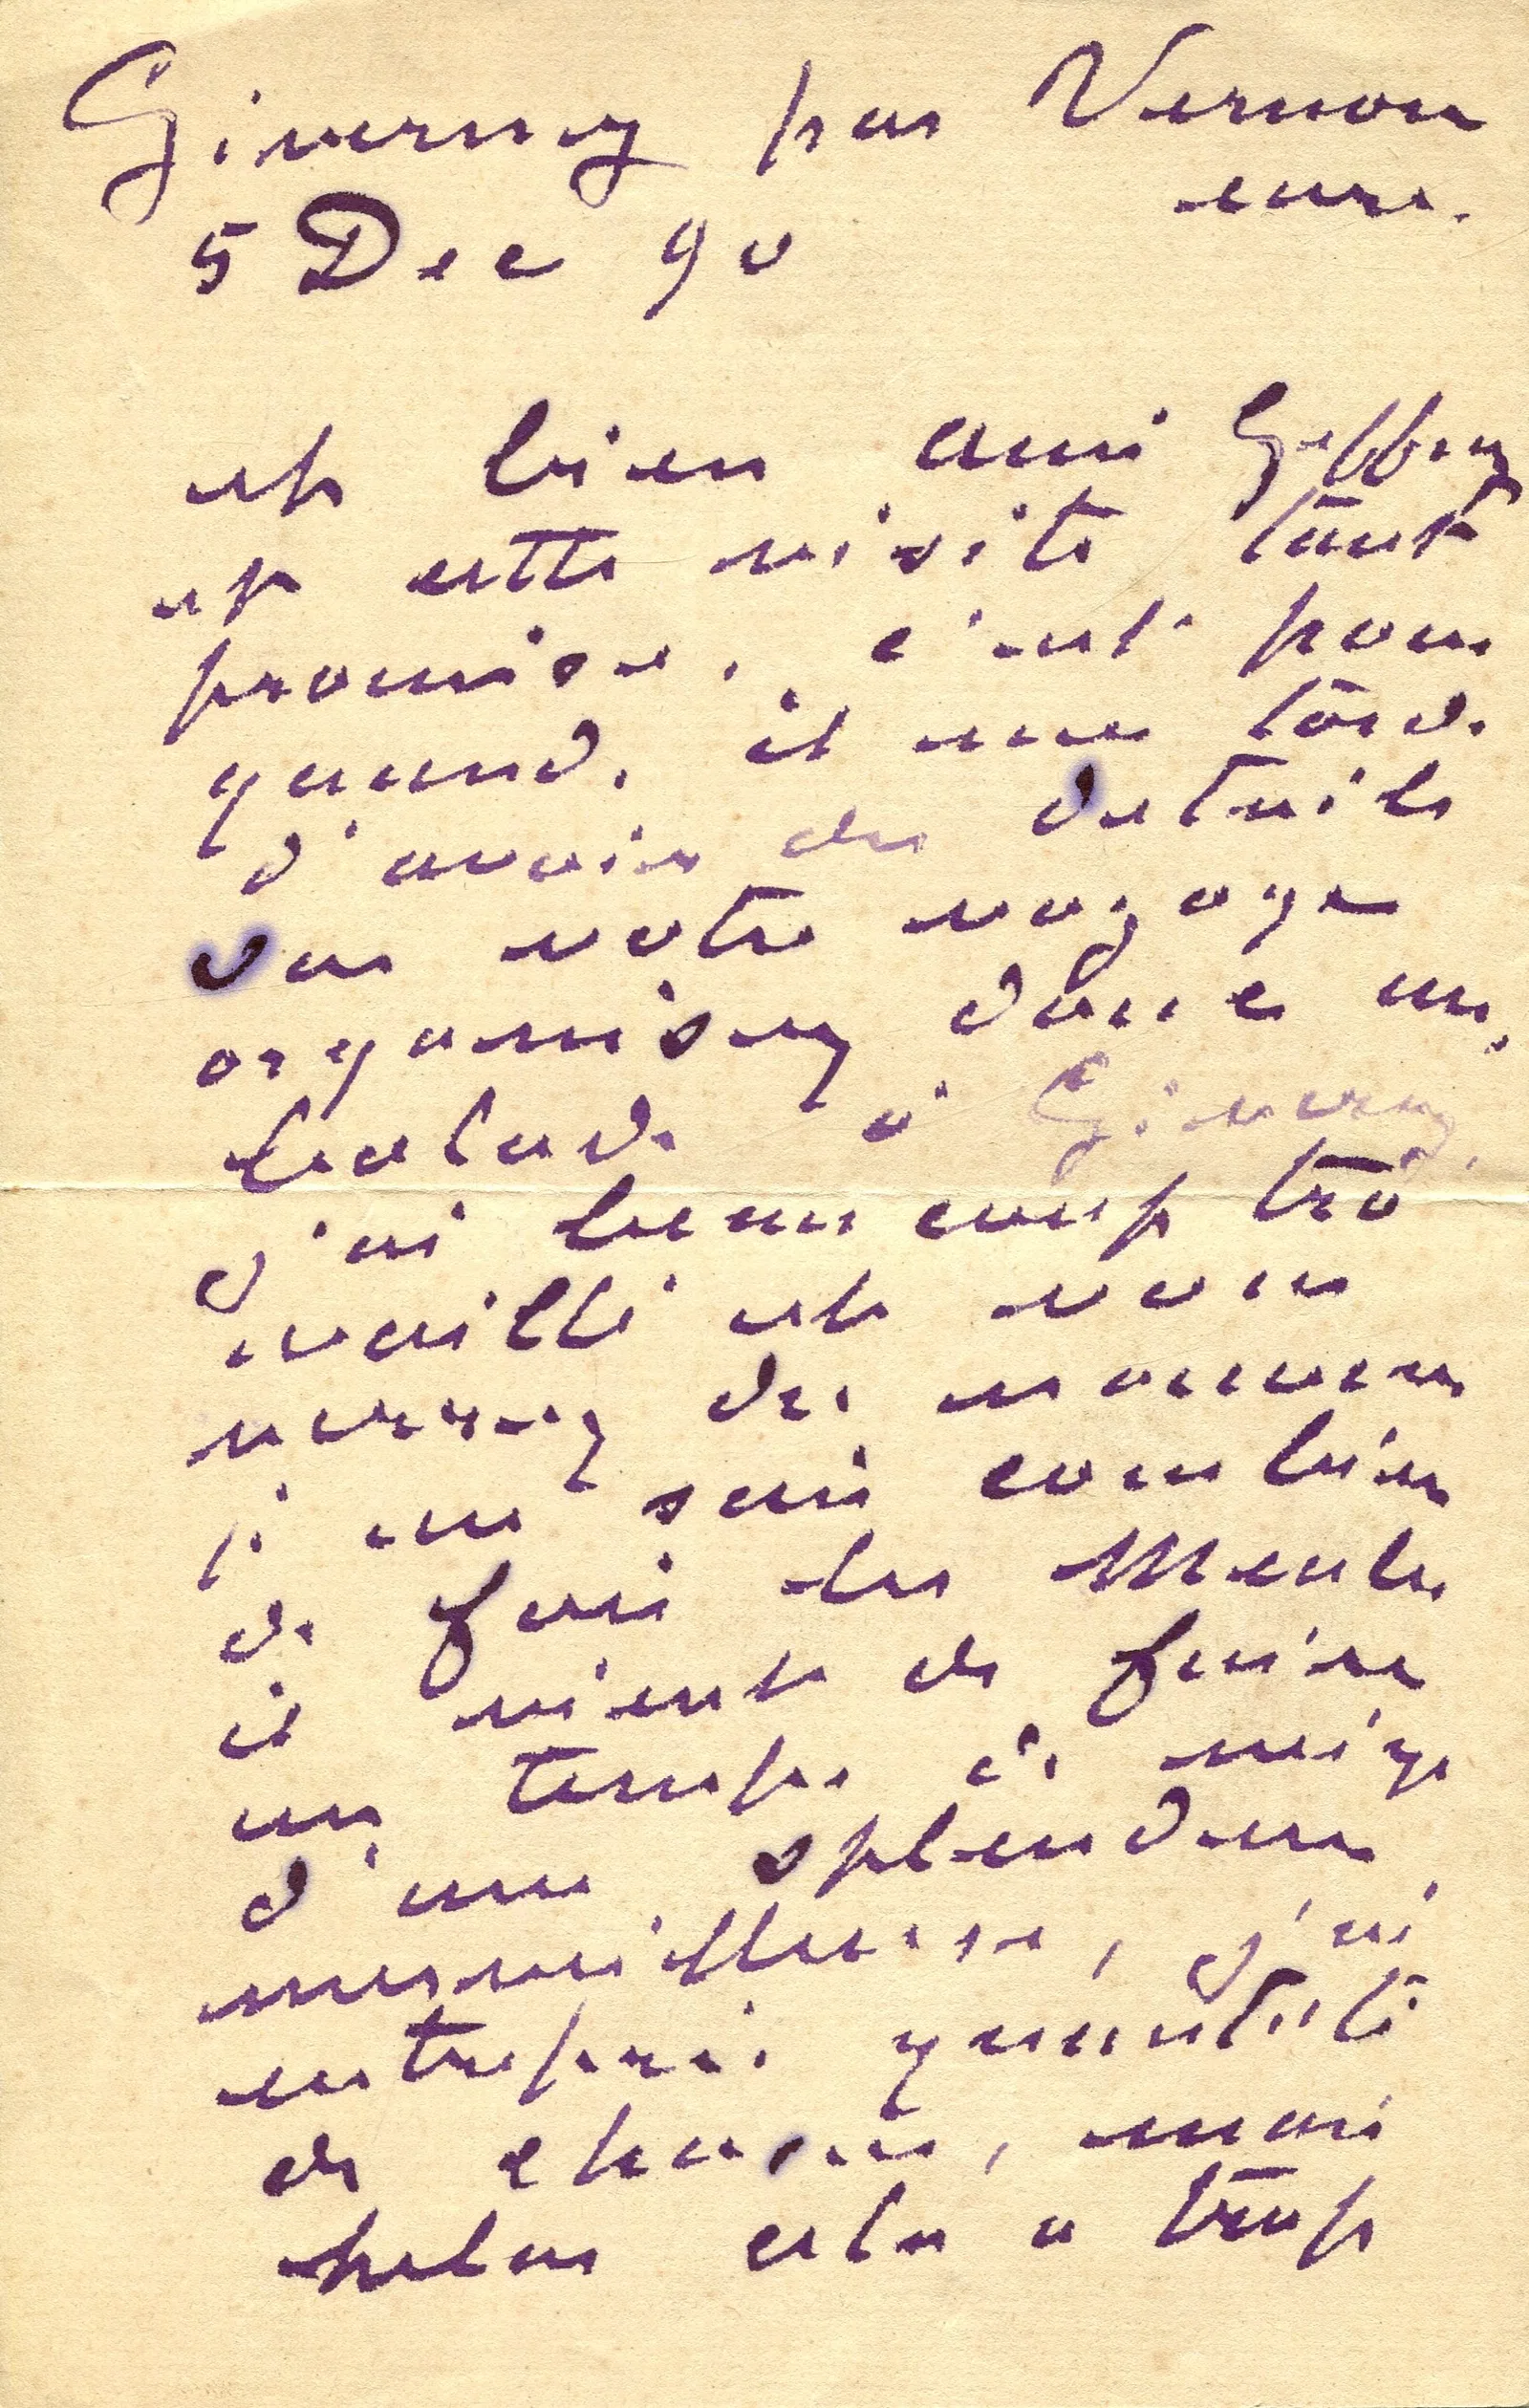 Giverny par Vernon
eure.
5 Dec 90
et bien ami Geffroy
et cette visite tant
promise, c'est pour
quand, il me tarde
d'avoir des details
sur votre voyage
organisez donc un
Goncourt à Giverny.
j'ai beaucoup tra
vaillé et vous
verrez du nouveau
je ne sais combien
de fois les Meules
il vient de faire
un temps de neige
d'une splendeur
merveilleuse, j'ai
entrepris quantité
de choses, mais
helas cela a trop